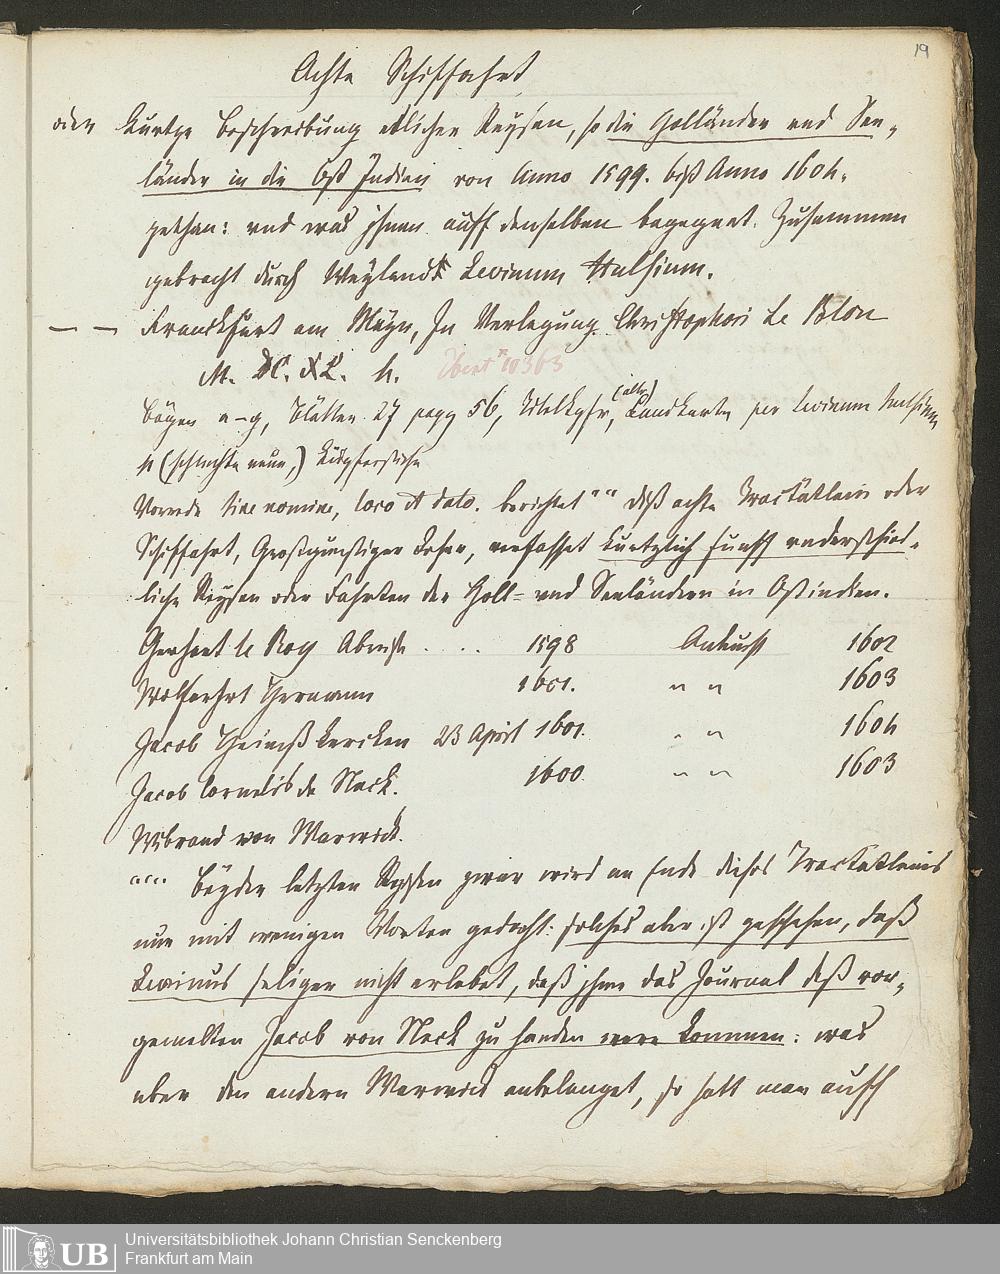 19
Achte Schiffahrt,
oder Kurtze Beschreibung etlicher Reysen, so die Holländer und See-
länder in die Ost Indien von Anno 1599. biß Anno 1604.
gethan: und was jhnen auff denselben begegnet. Zusammen
gebracht durch Weylandt Levinum Hulsium.
— — Franckfurt am Mayn, In Verlegung Christophori Le Blon
M. DC. XL. 4.
Ebert 10363
Bögen a–g, Blätter 27 pagg 56, Titelkpfr, (alte) Landkarte per Levinum Hulsium
4 (schlechte neue,) Kupferstiche
Vorrede sine nomine, loco et dato. berichtet "" diß achte Tractätlein oder
Schiffahrt, Großgünstiger Leser, verfasset kürtzlich fünff underschied-
liche Reysen oder Fahrten der Holl- und Seeländern in Ostindien.
Gerhart le Roy Abreise . . . . 1598 Ankunft 1602
Wolfarhrt Hermann 1601. " " 1603
Jacob Heimßkercken 23 April 1601. " " 1604
Jacob Cornelis de Neck. 1600. " " 1603
Wibrand von Warwick.
"" Beyder letzten Reysen zwar wird am Ende dieses Tractätleins
nur mit wenigen Worten gedacht: solches aber ist geschehen, daß
Levinus seliger nicht erlebet, daß jhme das Journal deß vor-
gemelten Jacob von Neck zu handen were kommen: was
aber den andern Warwick anbelanget, so hatt man auff
Universitätsbibliothek Johann Christian Senckenberg
Frankfurt am Main
UB